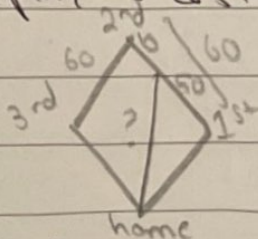 2nd
60
60
50
3rd
?
1st
home